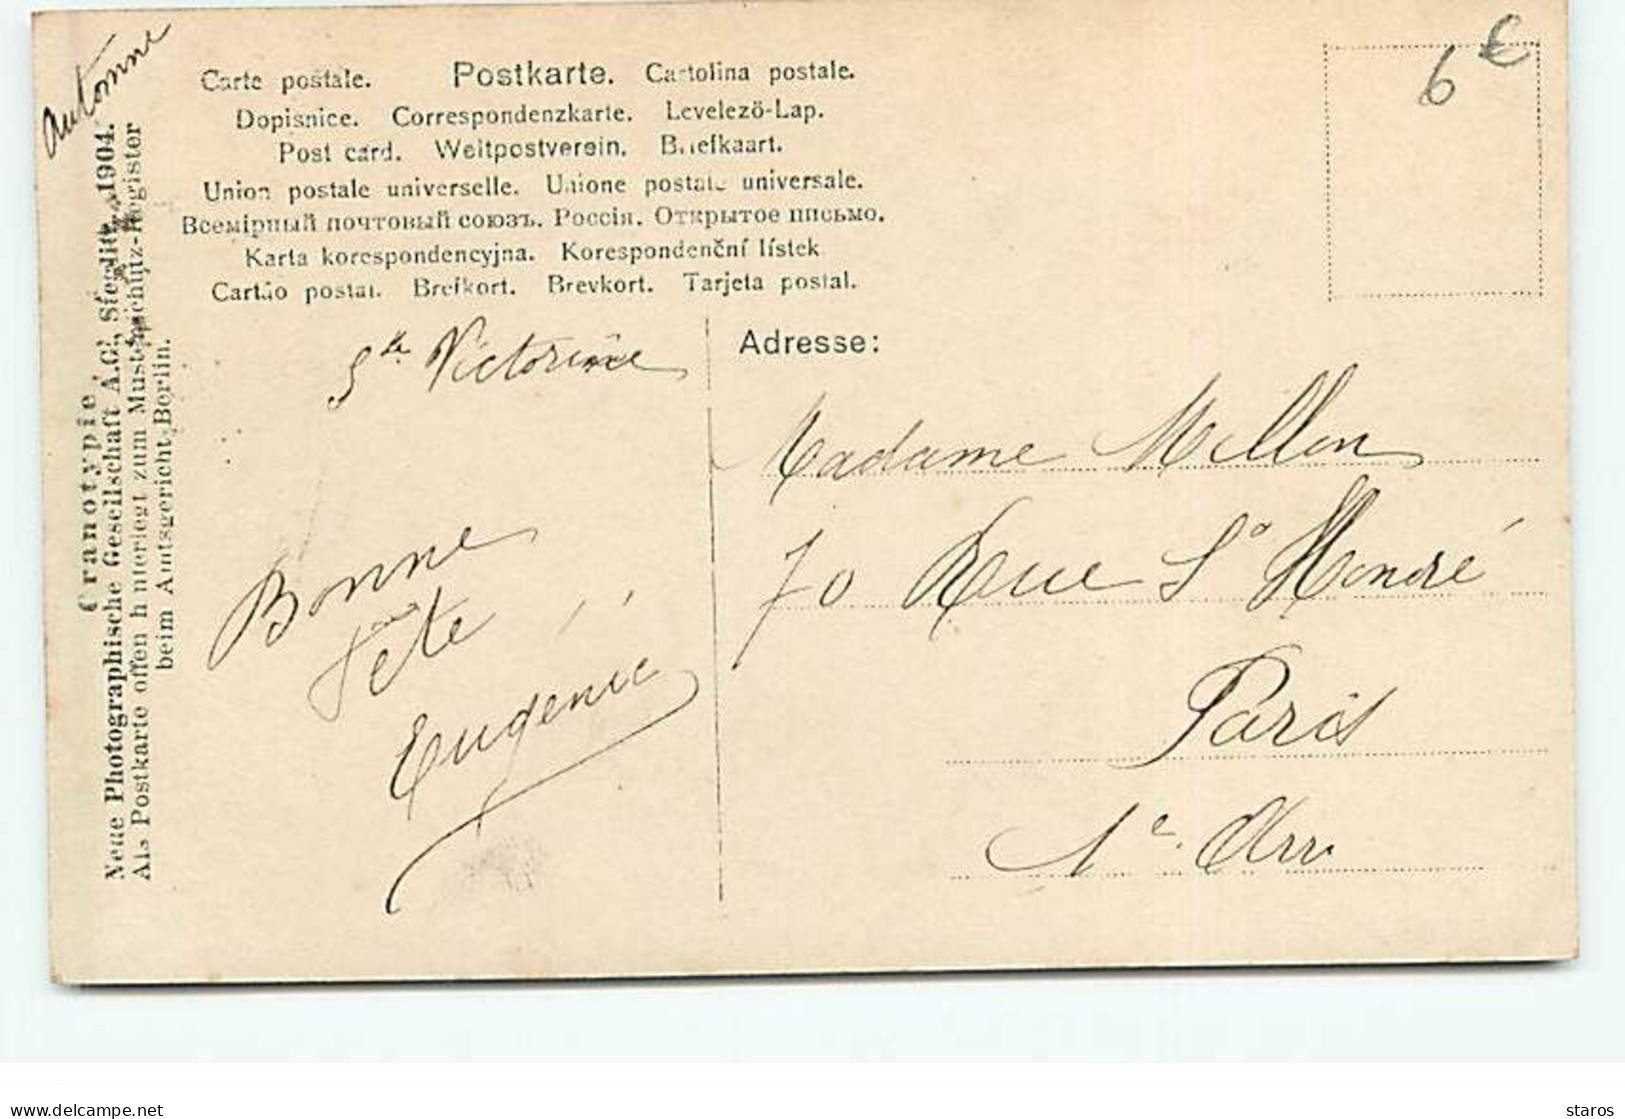 Automne
6 €
Carte postale. Postkarte. Cartolina postale.
Dopisnice. Correspondenzkarte. Levelező-Lap.
Post card. Weltpostverein. Briefkaart.
Union postale universelle. Unione postale universale.
Всемірный почтовый союзъ. Россія. Открытое письмо.
Karta korespondencyjna. Korespondenční lístek
Cartão postal. Brefkort. Brevkort. Tarjeta postal.
Oranotypie
Neue Photographische Gesellschaft A.G., Steglitz 1904.
Als Postkarte offen hinterlegt zum Musterschutz-Register
beim Amtsgericht-Berlin.
Ste Victorine
Bonne
fête
Eugénie
Adresse:
Madame Millon
70 Rue St Honoré
Paris
1e Arr
delcampe.net
staros